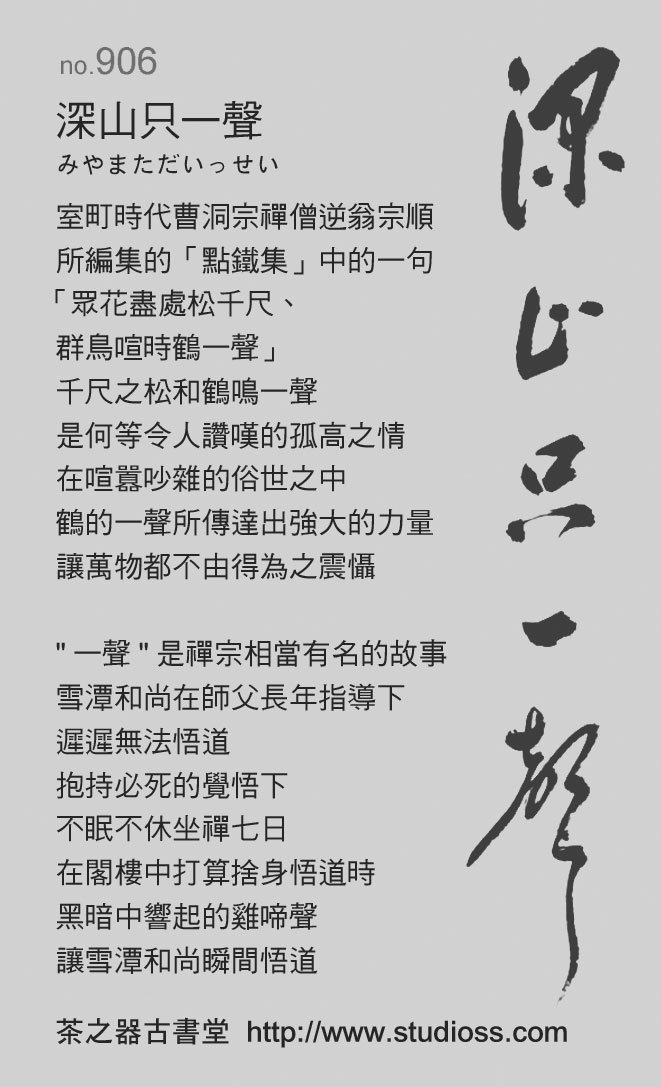 no.906
深山只一聲
みやまただいっせい
室町時代曹洞宗禪僧逆翁宗順
所編集的「點鐵集」中的一句
「眾花盡處松千尺、
群鳥喧時鶴一聲」
千尺之松和鶴鳴一聲
是何等令人讚嘆的孤高之情
在喧囂吵雜的俗世之中
鶴的一聲所傳達出強大的力量
讓萬物都不由得為之震懾
"一聲"是禪宗相當有名的故事
雪潭和尚在師父長年指導下
遲遲無法悟道
抱持必死的覺悟下
不眠不休坐禪七日
在閣樓中打算捨身悟道時
黑暗中響起的雞啼聲
讓雪潭和尚瞬間悟道
茶之器古書堂 http://www.studioss.com
深山只一聲